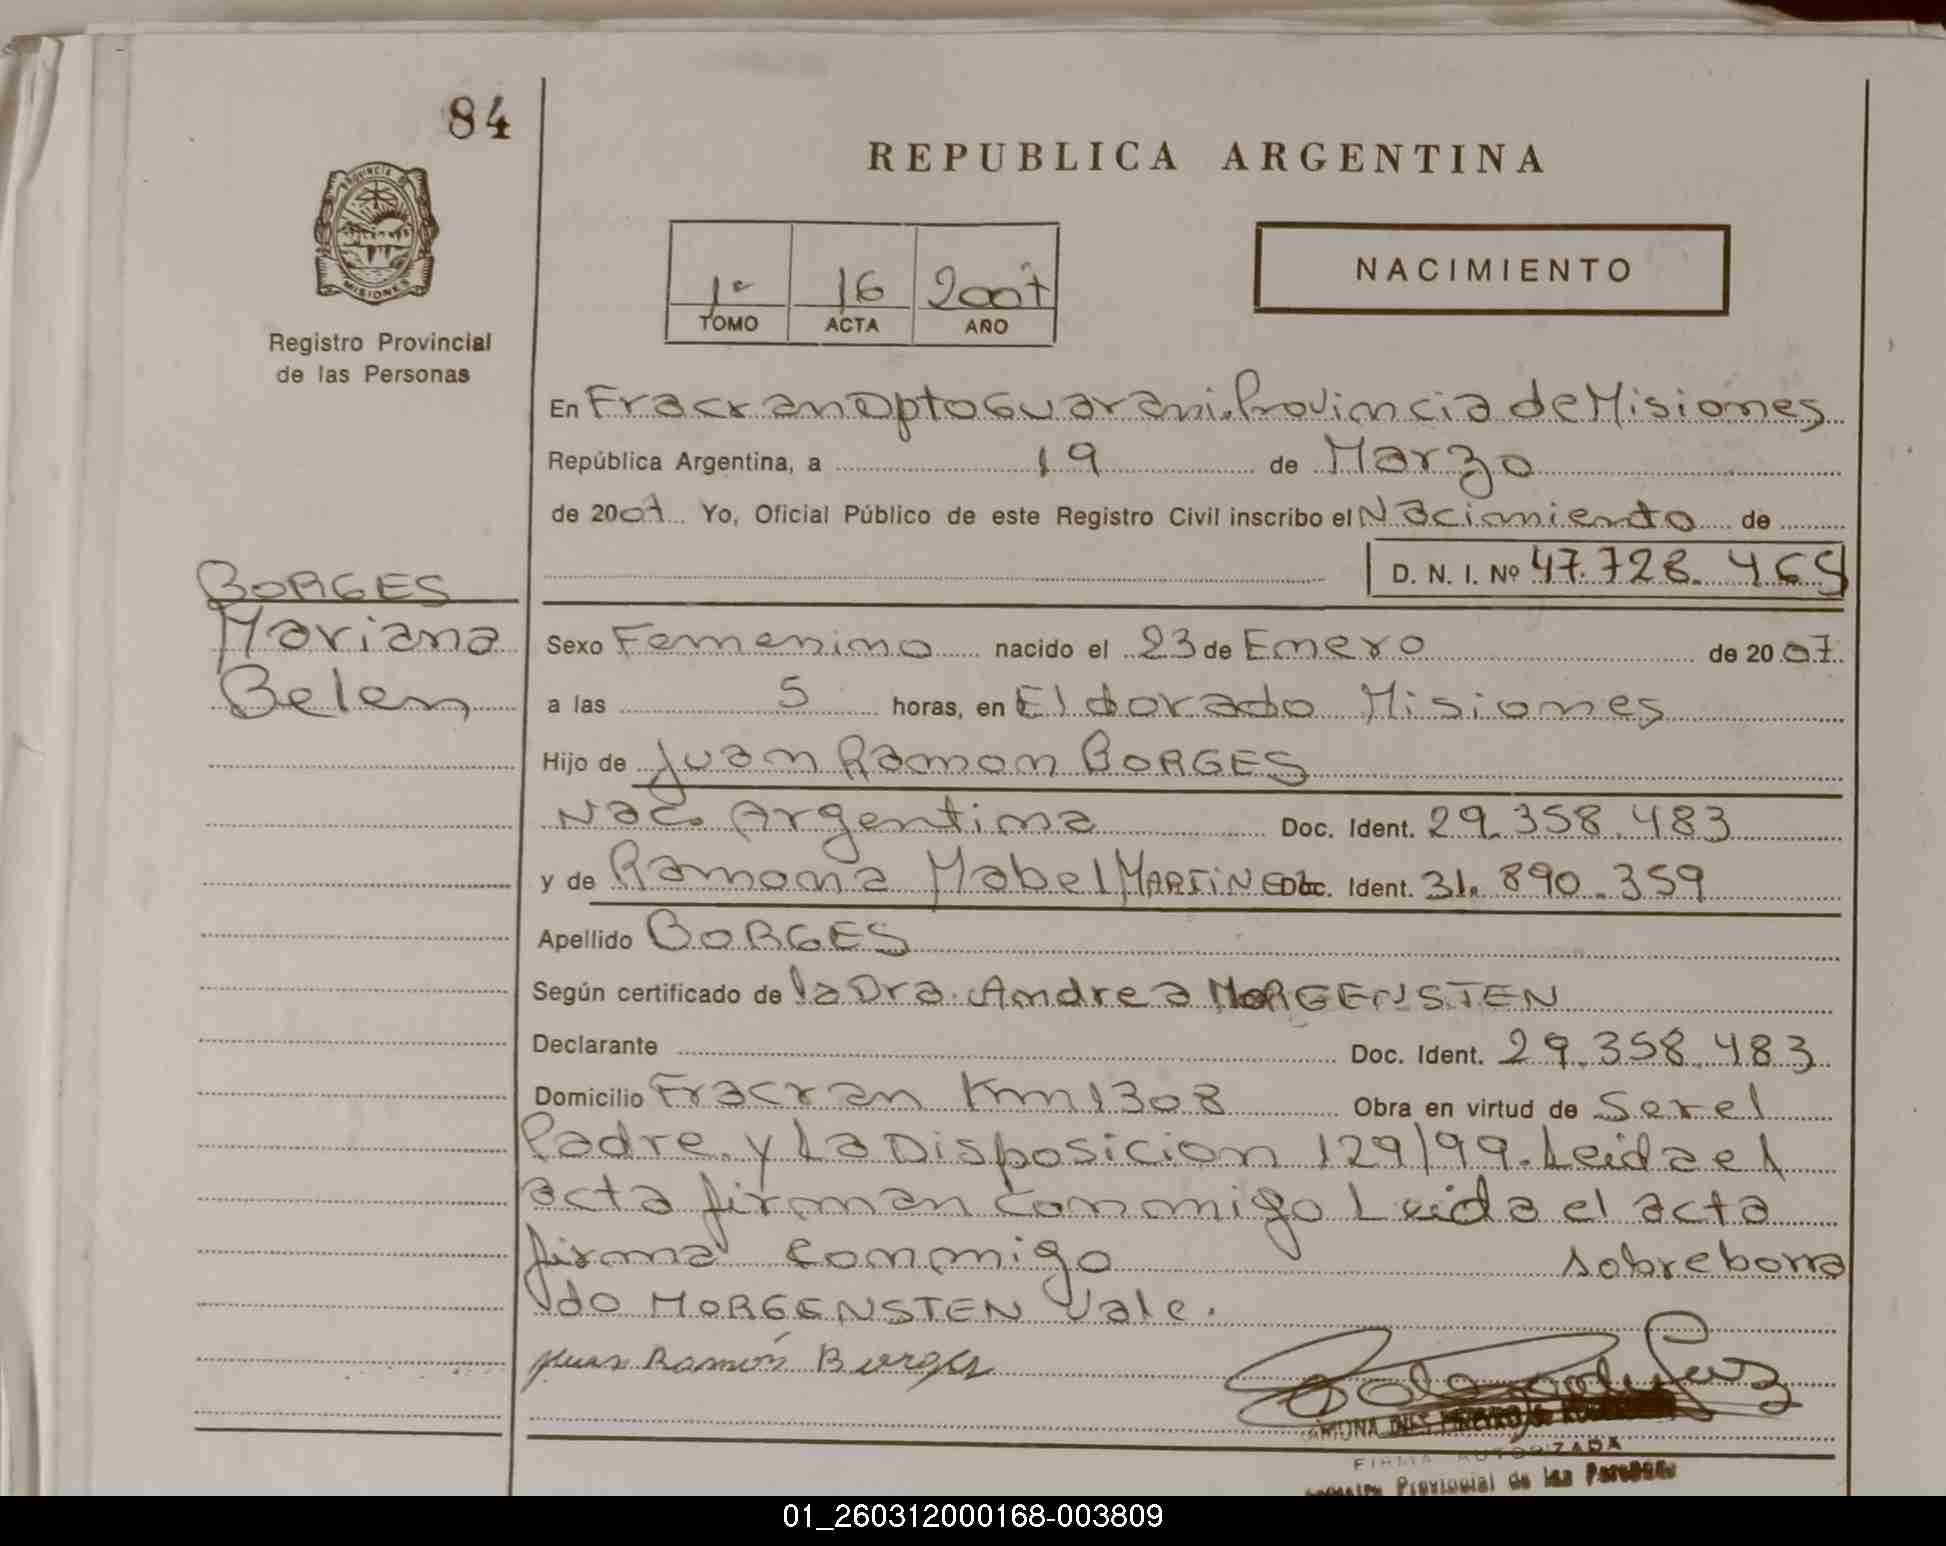 84
REPUBLICA ARGENTINA
PROVINCIA DE
MISIONES
Registro Provincial
de las Personas
1º 16 2007
TOMO ACTA AÑO
NACIMIENTO
En Fracran Dpto Guarani. Provincia de Misiones
República Argentina, a 19 de Marzo
de 2007 Yo, Oficial Público de este Registro Civil inscribo el Nacimiento de
D. N. I. Nº 47.728.465
BORGES
Mariana
Belen
Sexo Femenino nacido el 23 de Enero de 2007
a las 5 horas, en Eldorado Misiones
Hijo de Juan Ramon BORGES
Nac. Argentina Doc. Ident. 29.358.483
y de Ramona Mabel MARTINEZ Doc. Ident. 31.890.359
Apellido BORGES
Según certificado de la Dra. Andrea MORGENSTEN
Declarante Doc. Ident. 29.358.483
Domicilio Fracran Km 1308 Obra en virtud de Ser el
Padre y La Disposicion 129/99. Leida el
acta firman conmigo Leida el acta
firma conmigo sobreborra
do MORGENSTEN Vale.
Juan Ramón Borges
FIRMA AUTORIZADA
Provincial de las Personas
01_260312000168-003809